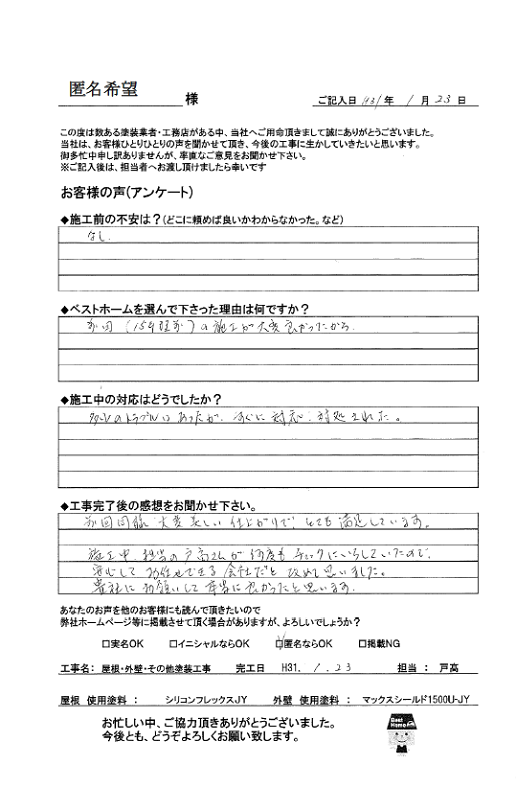 匿名希望 様
ご記入日 H31 年 1 月 23 日
この度は数ある塗装業者・工務店がある中、当社へご用命頂きまして誠にありがとうございました。
当社は、お客様ひとりひとりの声を聞かせて頂き、今後の工事に生かしていきたいと思います。
御多忙中申し訳ありませんが、率直なご意見をお聞かせ下さい。
※ご記入後は、担当者へお渡し頂けましたら幸いです
お客様の声(アンケート)
◆施工前の不安は?(どこに頼めば良いかわからなかった。など)
なし.
◆ベストホームを選んで下さった理由は何ですか?
前回(15年程前)の施工が大変良かったから.
◆施工中の対応はどうでしたか?
多少のトラブルはあったが、すぐに対応・対処された。
◆工事完了後の感想をお聞かせ下さい。
前回同様、大変美しい仕上がりで、とても満足しています。
施工中、担当の戸高さんが何度もチェックにいらしていたので、
安心してお任せできる会社だと改めて思いました。
貴社にお願いして本当に良かったと思います.
あなたのお声を他のお客様にも読んで頂きたいので
弊社ホームページ等に掲載させて頂く場合がありますが、よろしいでしょうか?
□実名OK □イニシャルならOK ☑匿名ならOK □掲載NG
工事名: 屋根・外壁・その他塗装工事 完工日 H31. 1. 23 担当 : 戸高
屋根 使用塗料 : シリコンフレックスJY 外壁 使用塗料 : マックスシールド1500U-JY
お忙しい中、ご協力頂きありがとうございました。
今後とも、どうぞよろしくお願い致します。
Best Home